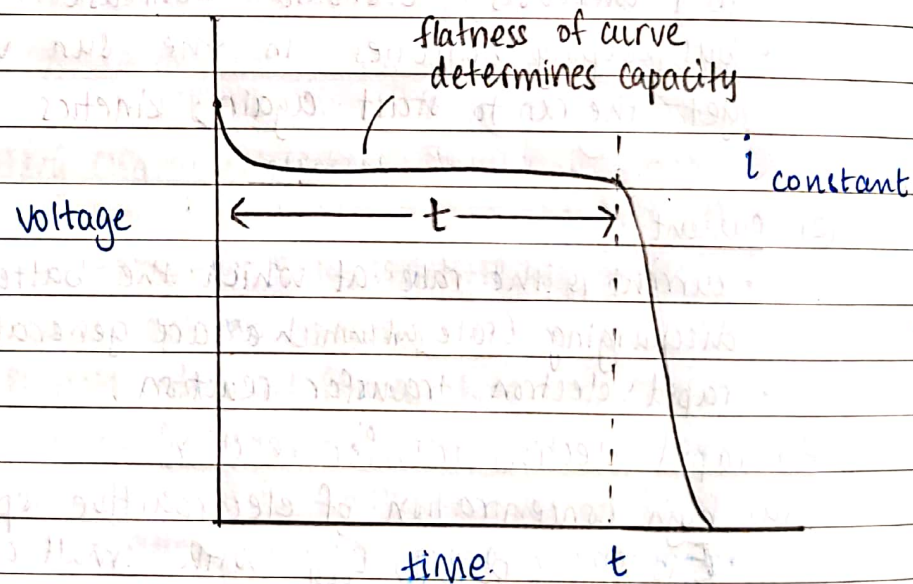 flatness of curve
determines capacity
i constant
voltage
t
time.
t